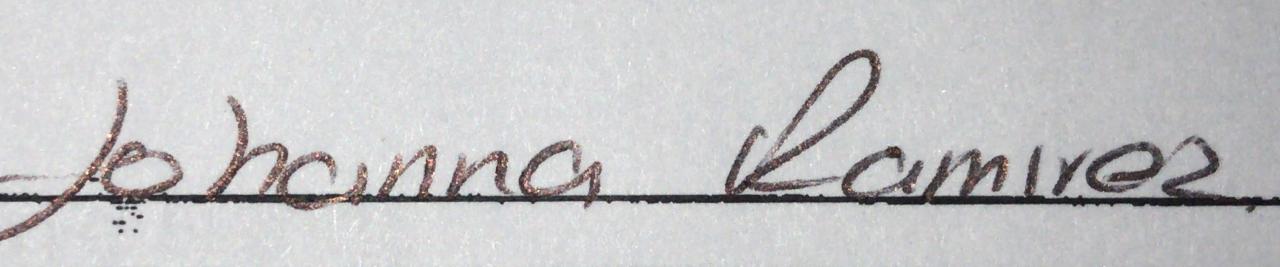 Johanna Ramirez